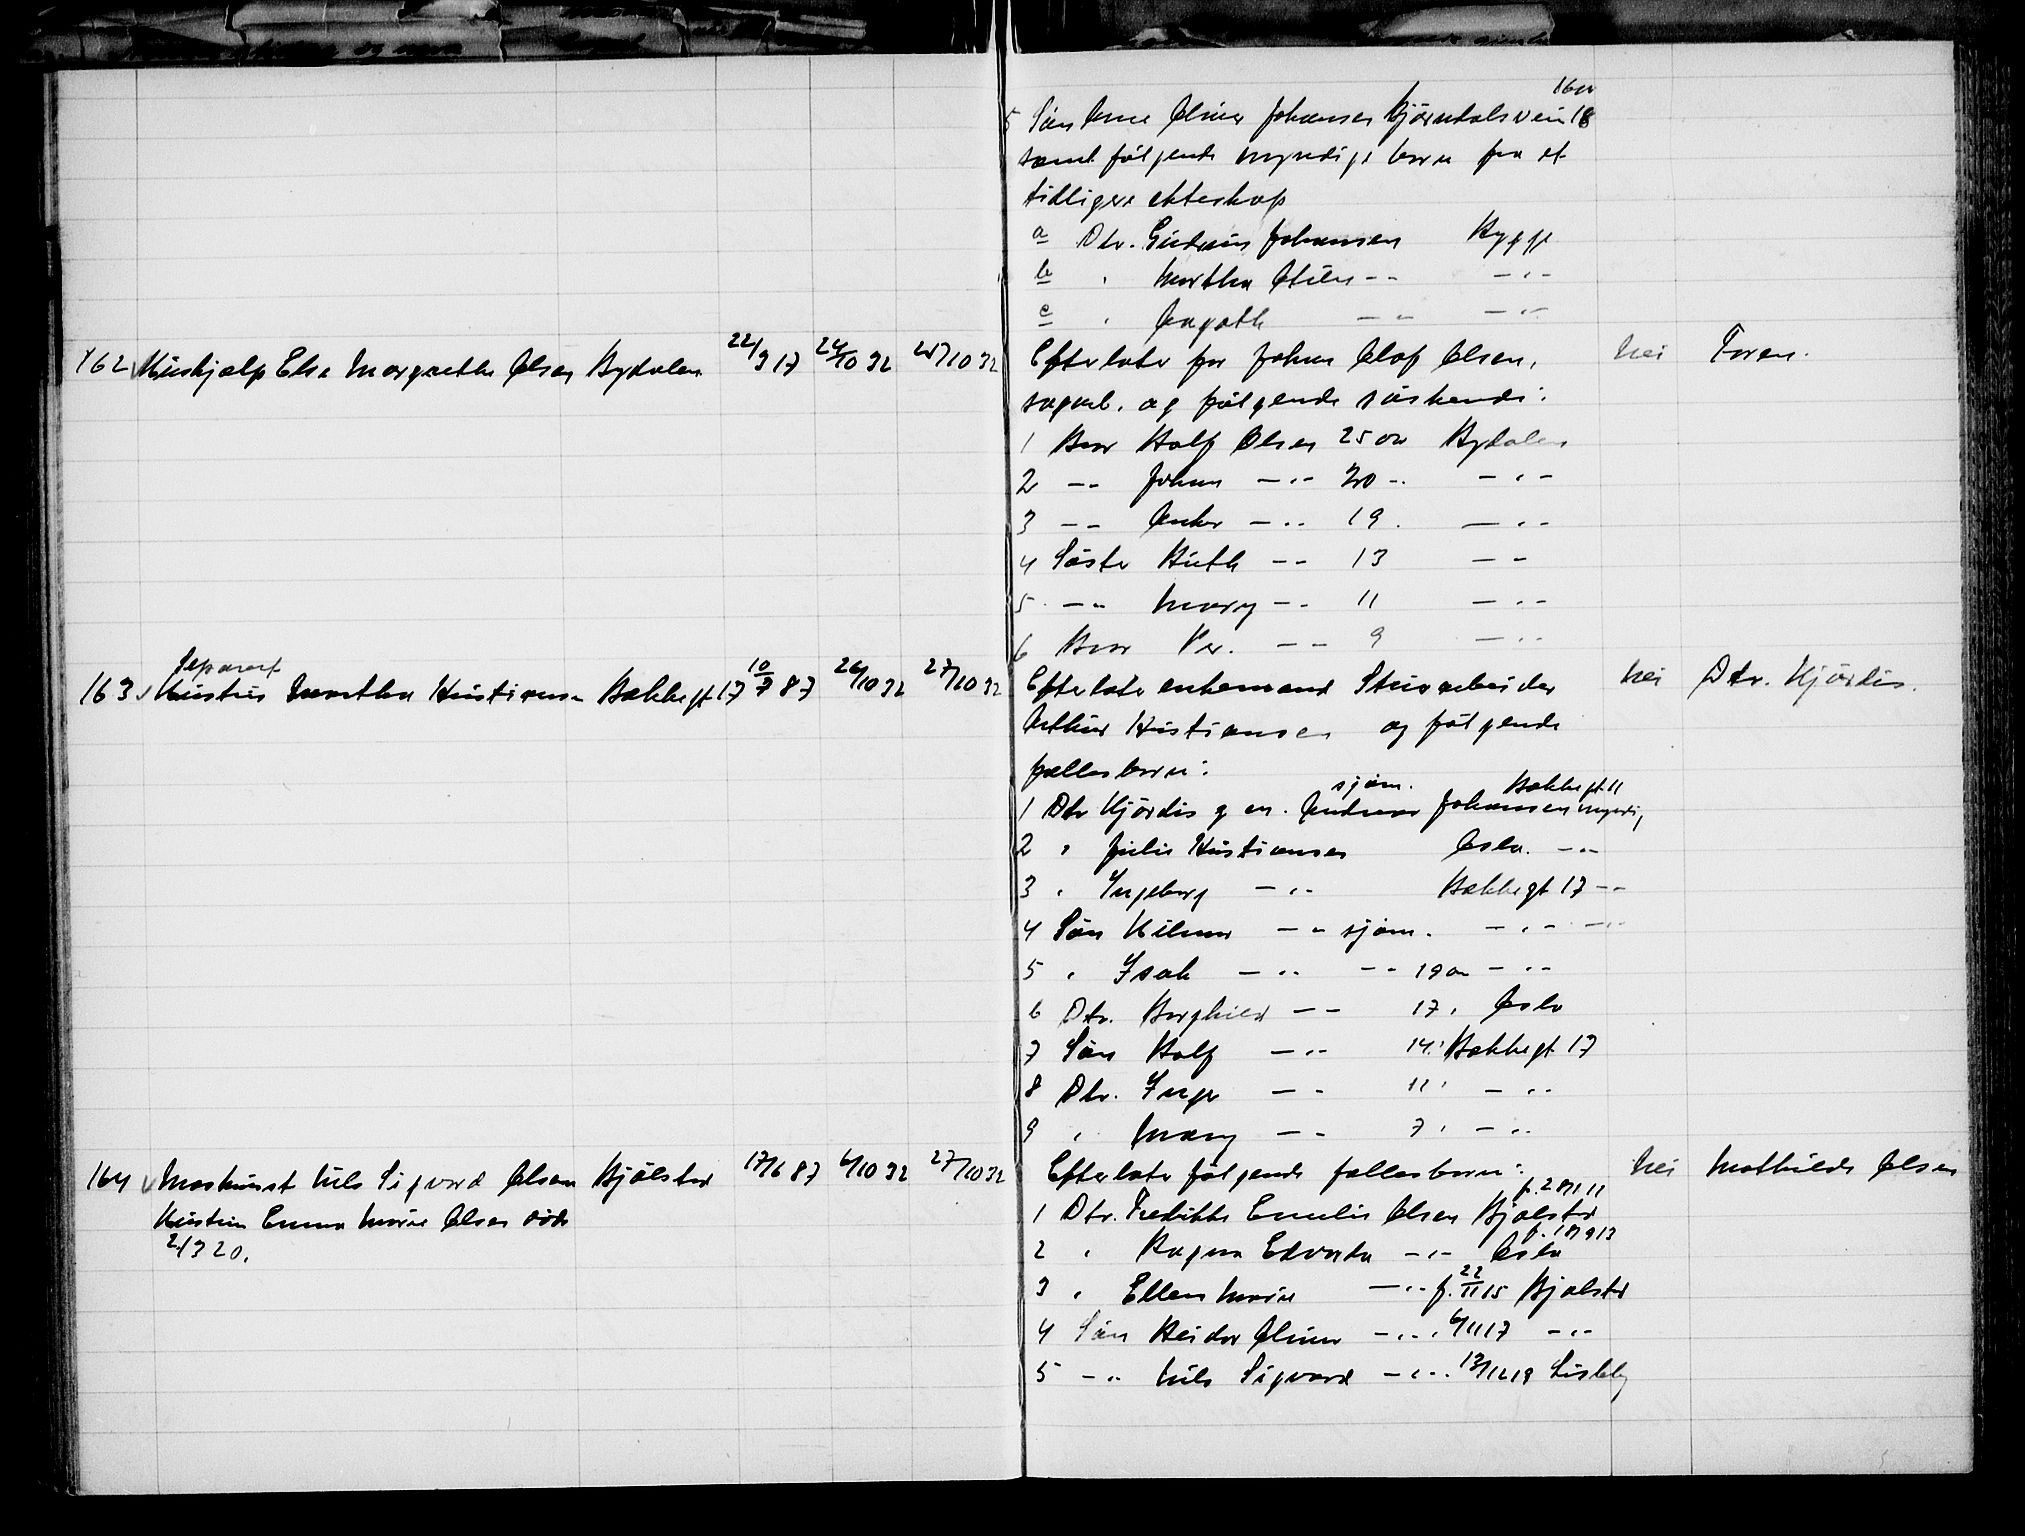 16 år
5 Søn Arne Elmer Johansen Bjørndalsvein 18
samt følgende myndige barn fra et
tidligere ekteskap
a Dtr. Gudrun Johansen Rygge
b " Martha Otilie -"- -"-
c " Aagoth -"- -"-
162 Hushjælp Else Margrethe Olsen Bydalen 22/9 17 24/10 32 25/10 32 Efterlater far Johan Olaf Olsen, nei Faren.
sagarb. og følgende søskende:
1 Bror Rolf Olsen 25 år Bydalen
2 -"- Johan -"- 20 -"- -"-
3 -"- Anker -"- 19 " -"-
4 Søster Ruth -"- 13 -"-
5 -"- Mary -"- 11 -"-
6 Bror Per. -"- 9 -"-
Separert
163 Hustru Martha Kristiansen Bakkegt 17 10/7 87 26/10 32 27/10 32 Efterlater enkemand Stuerarbeider nei Dtr. Hjørdis.
Arthur Kristiansen og følgende
fællesbarn:
sjøm. Bakkegt 11
1 Dtr Hjørdis g. m. Andreas Johansen myndig
2 " Julie Kristiansen Oslo. -"-
3 " Ingeborg -"- Bakkegt 17 -"-
4 Søn Hilmar -"- sjøm. -"- -"-
5 " Isak -"- -"- 19 år -"-
6 Dtr. Borghild -"- 17 " Oslo
7 Søn Rolf -"- 14 " Bakkegt 17
8 Dtr. Inger -"- 11 " -"-
9 " Mary -"- 7 " -"-
164 Maskinist Nils Sigvard Olsen Kjølstad 17/6 87 6/10 32 27/10 32 Efterlater følgende fællesbarn: nei Mathilde Olsen
Hustru Emma Marie Olsen døde
2/3 20.
f. 28/1 11
1 Dtr. Fredrikke Emilie Olsen Kjølstad
f. 18/9 13
2 " Ragna Edvarda -"- Oslo
3 " Ellen Marie -"- f. 22/11 15 Kjølstad
4 Søn Reidar Elmer -"- " 6/11 17 -"-
5 -"- Nils Sigvard -"- " 13/12 19 Lisleby